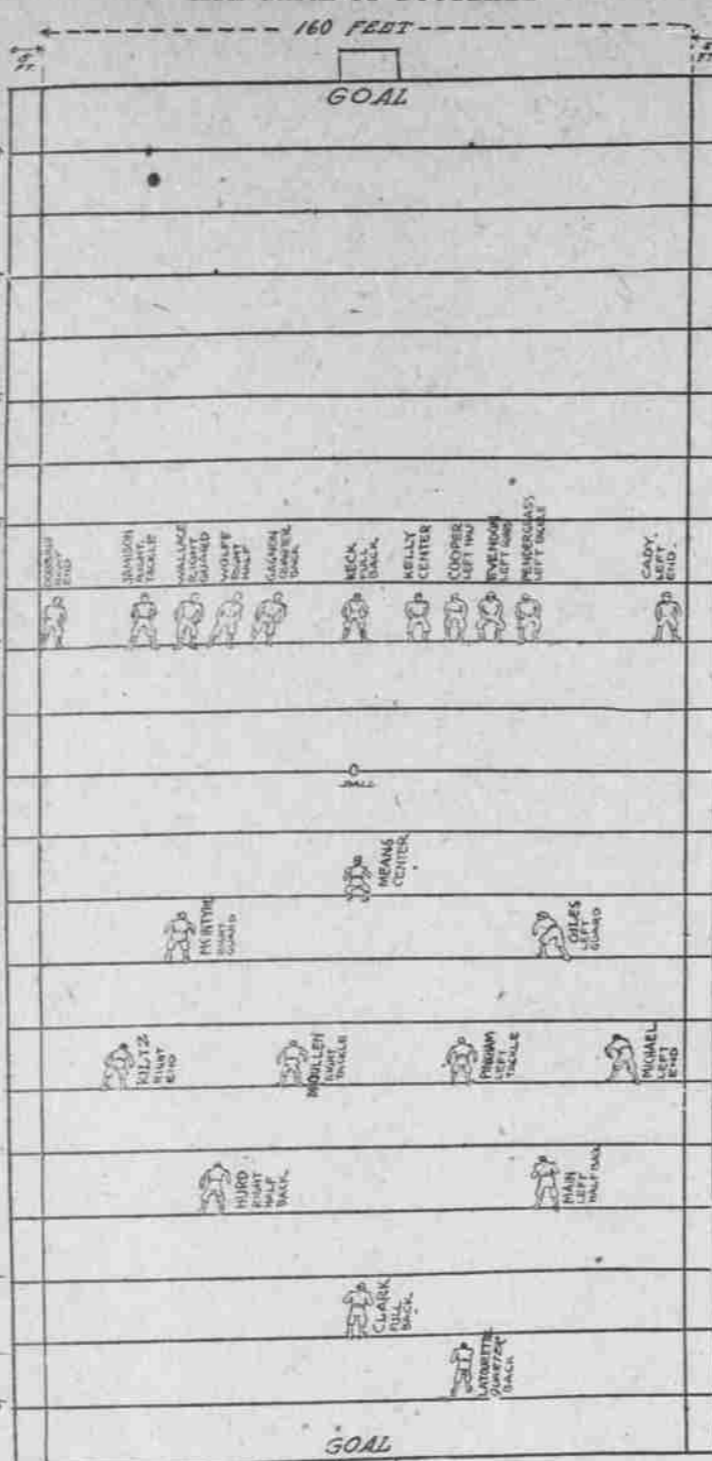 160 FEET
5
FT.
GOAL
RIGHT
END
JAMISON
RIGHT
TACKLE
WALLACE
RIGHT
GUARD
WOLFE
RIGHT
HALF
GAGNON
QUARTER
BACK
KECK
FULL
BACK
KELLY
CENTER
COOPER
LEFT HALF
EVENDON
LEFT GUARD
PENDERGRASS
LEFT TACKLE
CADY.
LEFT
END.
BALL
MEANS
CENTER
MCINTYRE
RIGHT
GUARD
GILES
LEFT
GUARD
KILTZ
RIGHT
END
RIGHT
TACKLE
PINKHAM
LEFT
TACKLE
MICHAEL
LEFT
END
HURD
RIGHT
HALF
BACK
MAIN
LEFT
HALF BACK
CLARK
FULL
BACK
LATOURETTE
QUARTER
BACK
GOAL